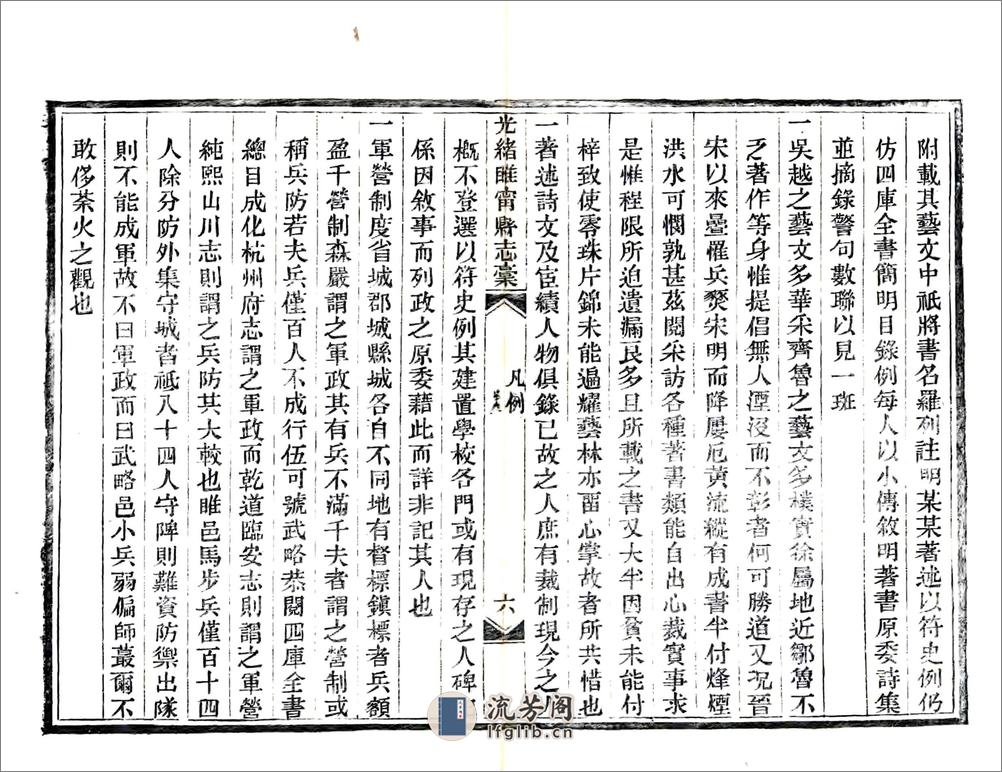 附載其藝文中祇將書名羅列註明某某著述以符史例仍
仿四庫全書簡明目錄例每人以小傳敘明著書原委詩集
並摘錄警句數聯以見一班
一吳越之藝文多華采齊魯之藝文多樸實徐屬地近鄒魯不
乏著作等身惟提倡無人湮沒而不彰者何可勝道又況晉
宋以來疊罹兵燹宋明而降屢厄黃流縱有成書半付烽煙
洪水可憫孰甚茲閱采訪各種著書類能自出心裁實事求
是惟程限所迫遺漏良多且所載之書又大半因貧未能付
梓致使零珠片錦未能遍耀藝林亦畱心掌故者所共惜也
一著述詩文及宦績人物俱錄已故之人庶有裁制現今之人
概不登選以符史例其建置學校各門或有現存之人碑
係因敘事而列政之原委藉此而詳非記其人也
一軍營制度省城郡城縣城各自不同地有督標鎮標者兵額
盈千營制森嚴謂之軍政其有兵不滿千夫者謂之營制或
稱兵防若夫兵僅百人不成行伍可號武略恭閱四庫全書
總目成化杭州府志謂之軍政而乾道臨安志則謂之軍營
純熙山川志則謂之兵防其大較也睢邑馬步兵僅百十四
人除分防外集守城者祇八十四人守陴則難資防禦出隊
則不能成軍故不曰軍政而曰武略邑小兵弱偏師蕞爾不
敢侈荼火之觀也
光緒睢甯縣志稾
凡例
六
流芳阁
lfglib.cn